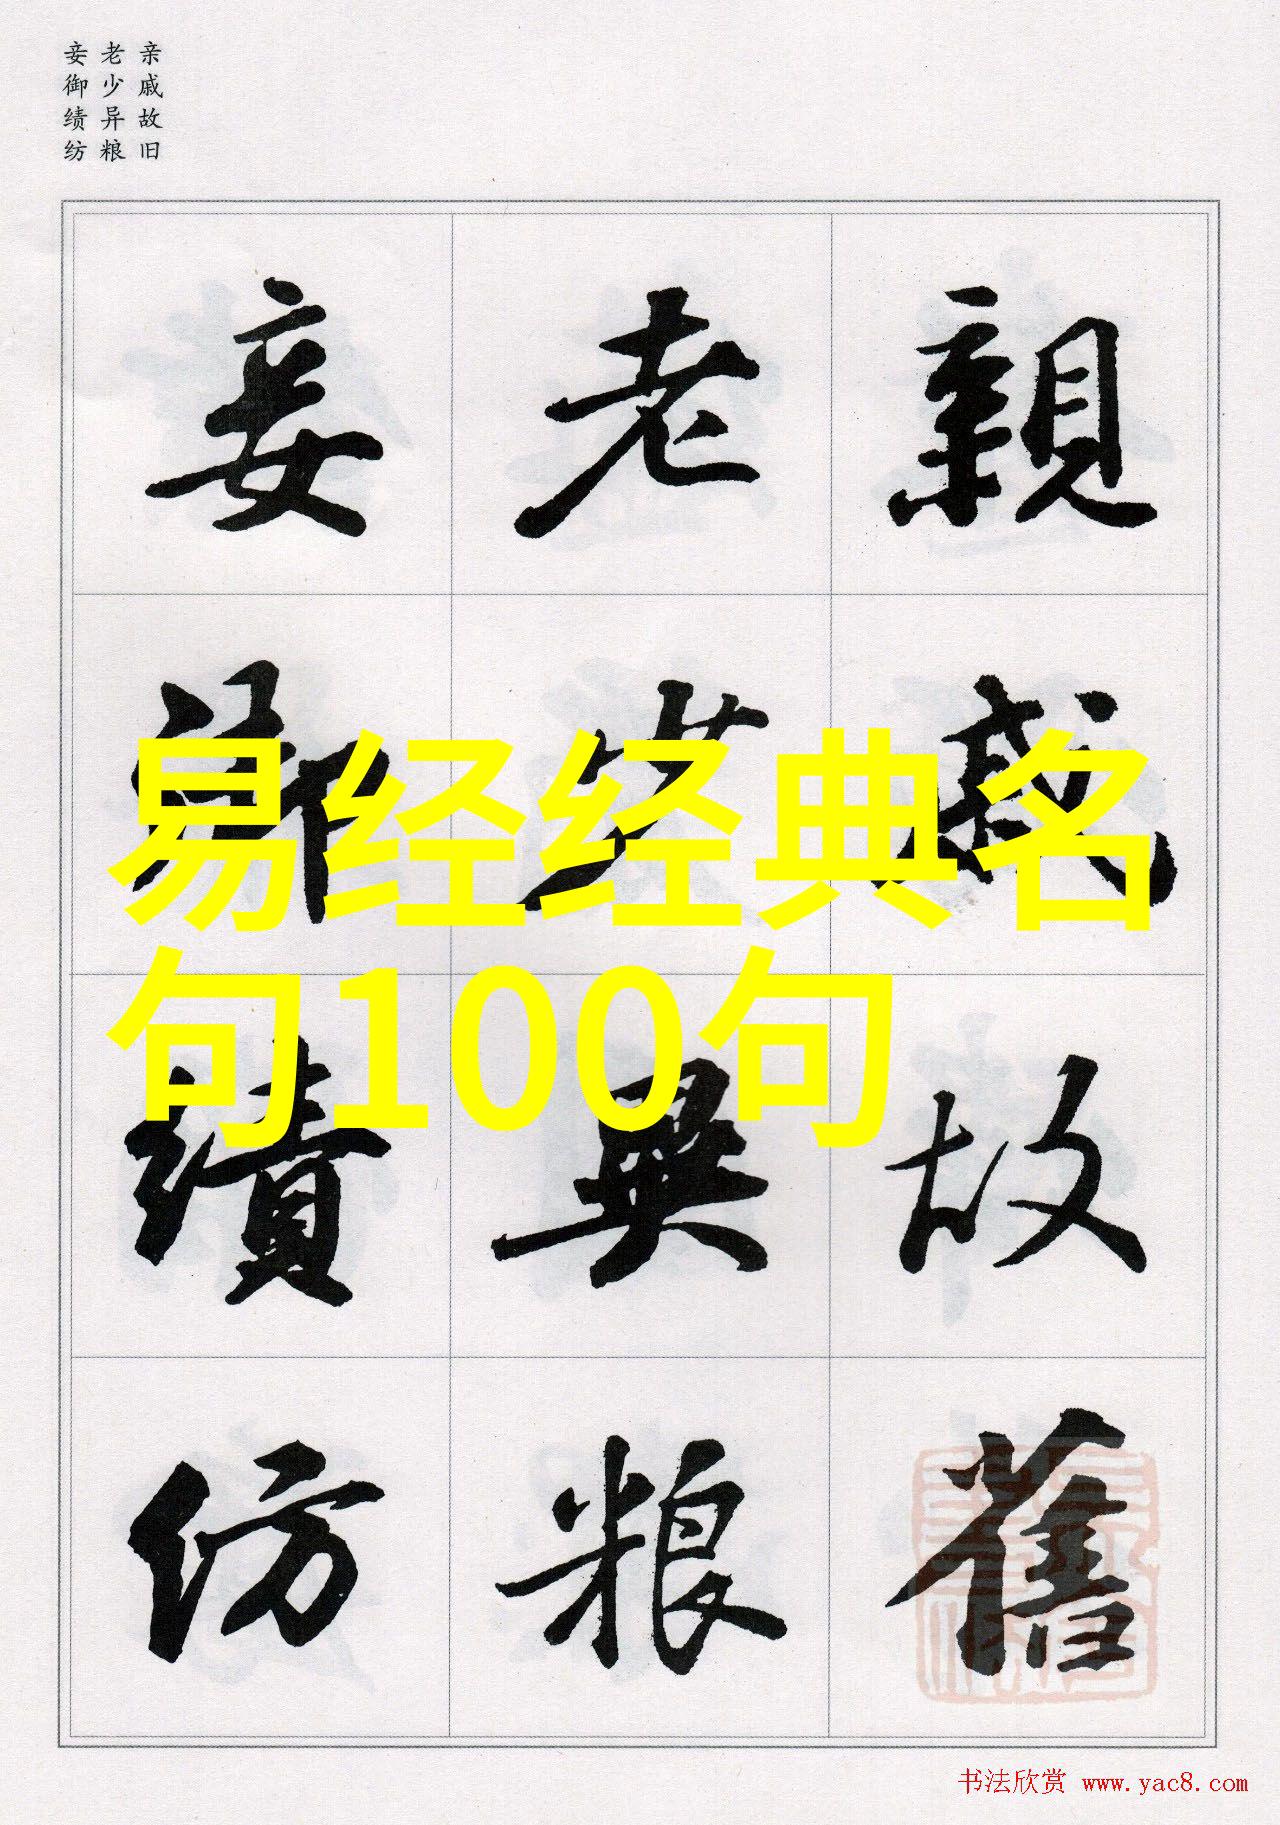 亲戚故旧
老少异粮
妾御绩纺
親戚故舊
老少異粮
妾御績紡
易经经典名
句100句
书法欣赏 www.yac8.com